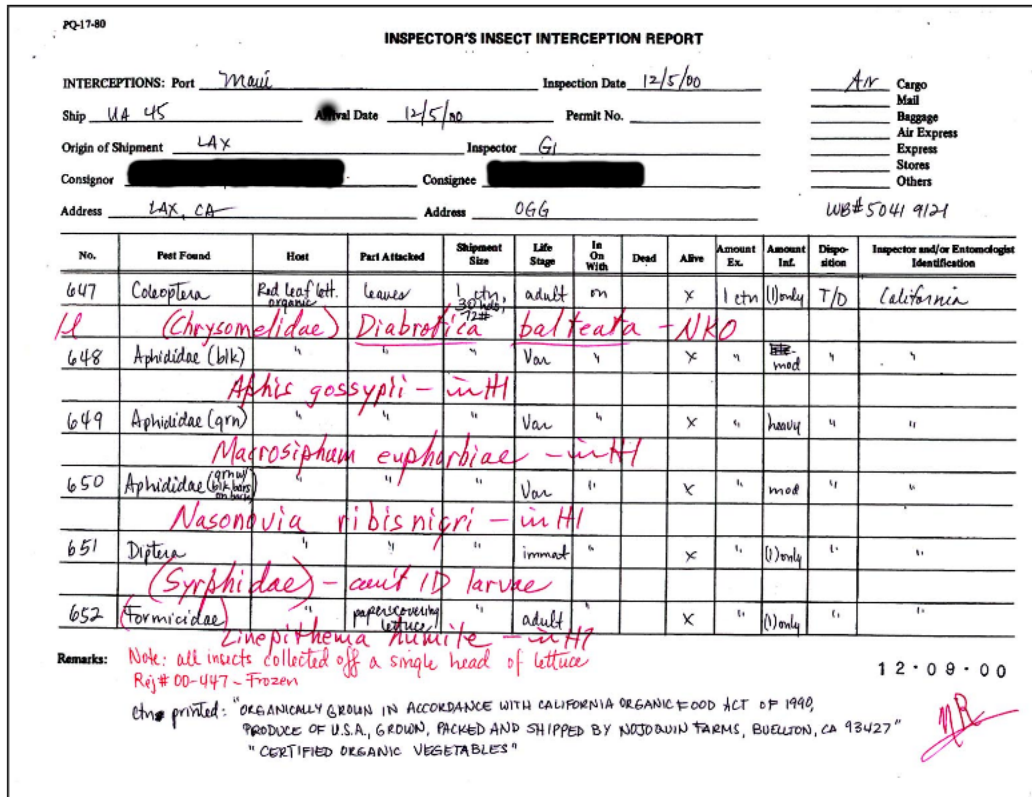 PQ-17-80
INSPECTOR'S INSECT INTERCEPTION REPORT
INTERCEPTIONS: Port Maui Inspection Date 12/5/00 AN Cargo
Mail
Ship UA 45 Arrival Date 12/5/00 Permit No. Baggage
Air Express
Origin of Shipment LAX Inspector GI Express
Stores
Consignor Consignee Others
Address LAX, CA Address OGG WB# 5041 9121
No. Pest Found Host Part Attacked Shipment Size Life Stage In On With Dead Alive Amount Ex. Amount Inf. Dispo-sition Inspector and/or Entomologist Identification
647 Coleoptera Red Leaf lett. organic leaves 1 ctn, 30 hds, 72# adult on X 1 ctn (1) only T/D California
(Chrysomelidae) Diabrotica balteata - NKO
648 Aphididae (blk) " " " Var " X " mod " "
Aphis gossypii - in HI
649 Aphididae (grn) " " " Var " X " heavy " "
Macrosiphum euphorbiae - in HI
650 Aphididae (grn w/ blk bars on back) " " " Var " X " mod " "
Nasonovia ribisnigri - in HI
651 Diptera " " " immat " X " (1) only " "
(Syrphidae) - can't ID larvae
652 (Formicidae) " paperscovering lettuce " adult " X " (1) only " "
Linepithema humile - in HI
Remarks: Note: all insects collected off a single head of lettuce
Rej# 00-447 - Frozen
12·09·00
ctns printed: "ORGANICALLY GROWN IN ACCORDANCE WITH CALIFORNIA ORGANIC FOOD ACT OF 1990,
PRODUCE OF U.S.A., GROWN, PACKED AND SHIPPED BY NOJOQUIN FARMS, BUELLTON, CA 93427"
"CERTIFIED ORGANIC VEGETABLES"
NR